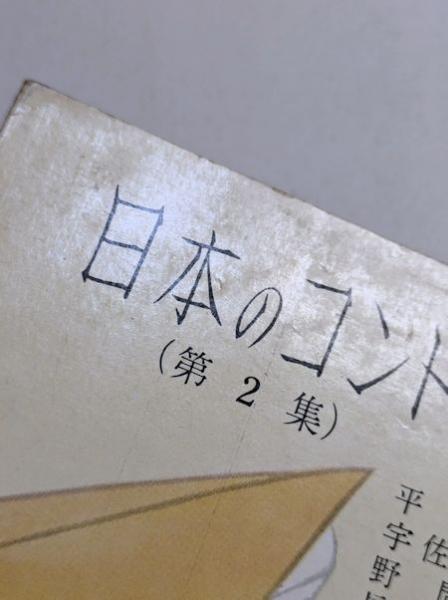 日本のコント
(第2集)
佐
平宇野